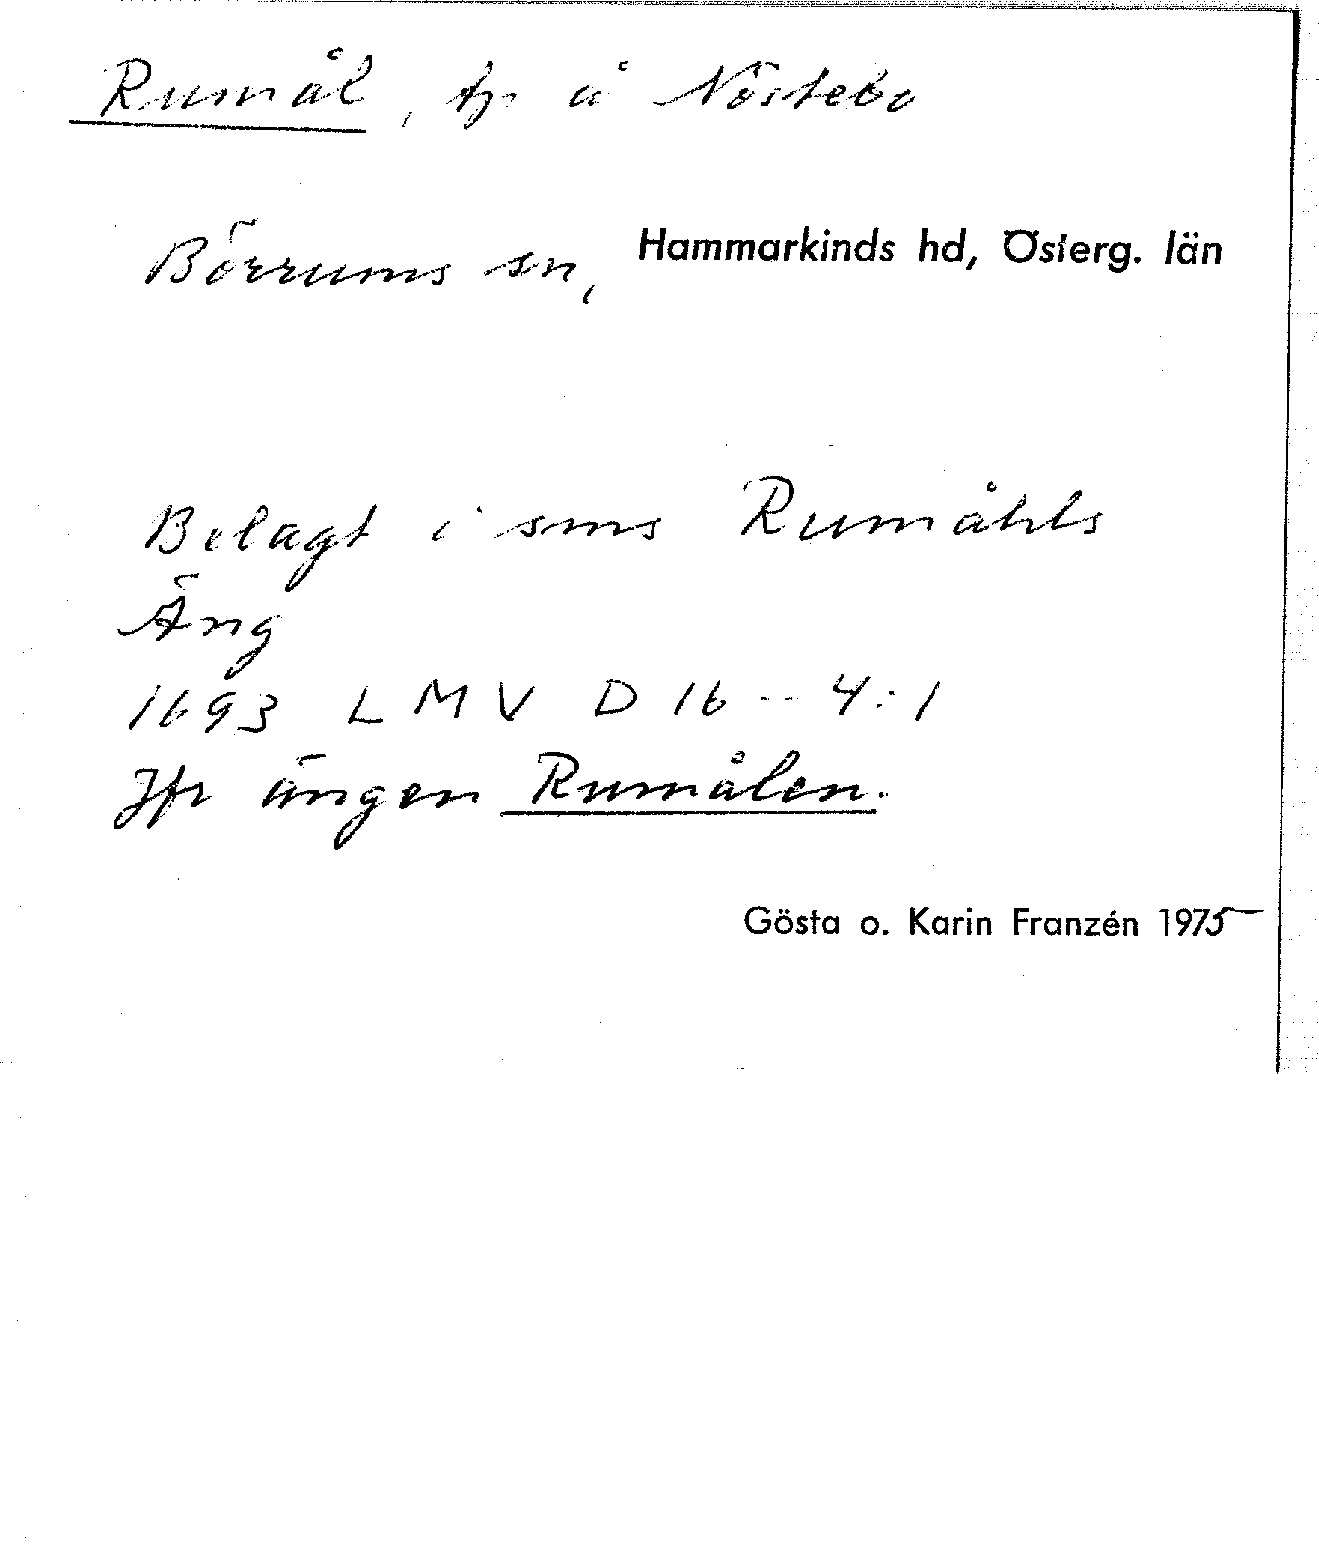 Rumål, tp å Nöstebo
Börrums sn, Hammarkinds hd, Österg. län
Belagt i sms Rumåhls
Äng
1693 LMV D 16--4:1
Jfr ängen Rumålen.
Gösta o. Karin Franzén 1975